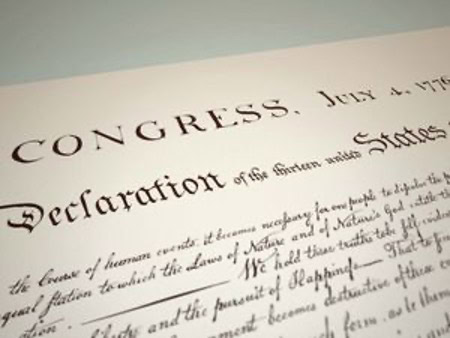 CONGRESS, JULY 4, 1776
Declaration of the thirteen united States
the Course of human events, it becomes necessary for one people to dissolve the
equal station to which the Laws of Nature and of Nature's God entitle
We hold these truths to be self-evident
and the pursuit of Happiness— That to
becomes destructive of these
form, as to them